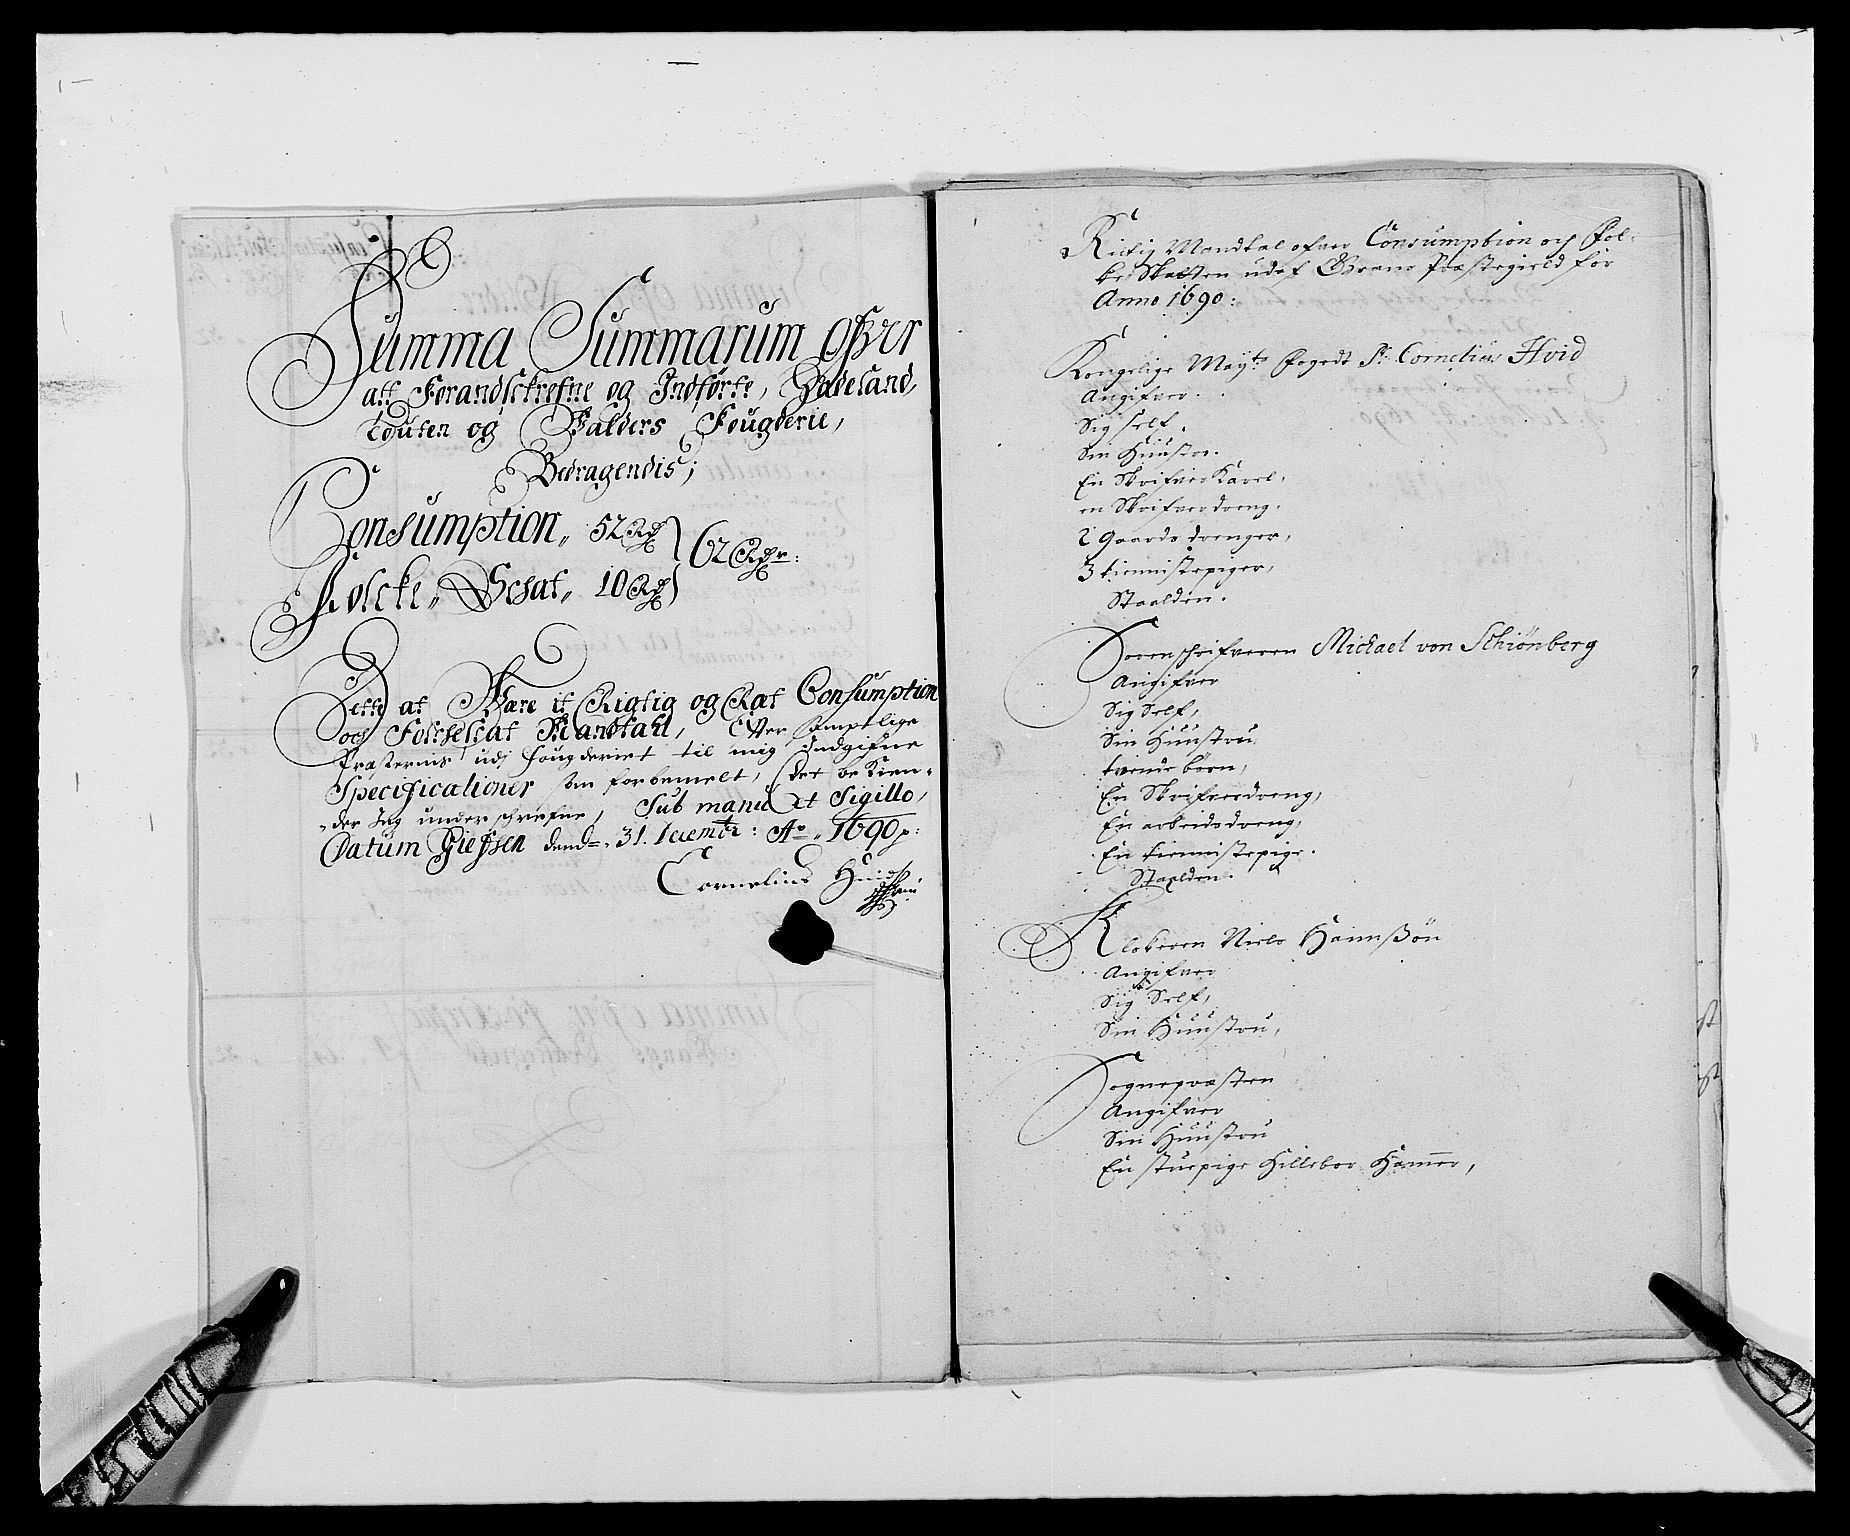 Summa Summarum ofver
alt Forandschrefne og Indførte, Hadeland,
Touten og Valders Fougderie,
Bedragendis;
Consumption„ 52 Rdr
62 Rdr:
Folcke„ Schat„ 10 Rdr
Dette at Være it Rigtig og Ræt Consumption
och Folcheschat Mandtall, Efter samptlige
Præsterns udj fougderiet til mig Indgifne
Specificationer som forbemelt, Det beKien-
der Jeg underschrefne, Sub manu et Sigillo,
Datum Gieffsen dend 31. Decembr: Ao. 1690 p:
Cornelius Huid
Rictig Mandtal ofver Consumption och Fol-
keSkatten udaf Grans Præstegield for
Anno 1690:
Kongelige Mayts Fogedt Sr. Cornelius Hvid
Angifver.
Sig self.
Sin Huustro.
En SkrifverKarel,
en Skrifverdreng,
2 Gaards drenger,
3 tiennistepiger,
Stalden.
Sorenschrifveren Michael von Schiönberg
Angifver
Sig Self,
Sin Huustru
tvende börn,
En Skrifverdreng,
En arbeidsdreng,
En tiennistepige.
Stalden.
Klokeren Niels Hannßön
Angifver
Sig Self,
Sin Huustru,
Sognepræsten
Angifver
Sin Huustru
En stuepige Hillebor Hammer,